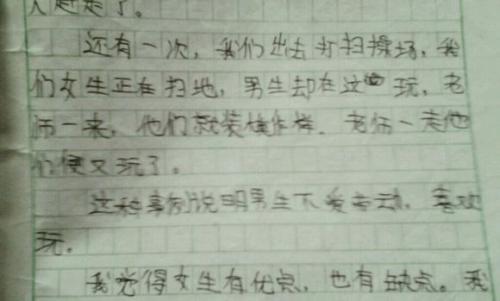 人赶走了。
还有一次，我们出去打扫操场，我
们女生正在扫地，男生却在这边玩，老
师一来，他们就装模作样．老师一走他
们便又玩了。
这种事例说明男生不爱劳动，喜欢
玩．
我觉得女生有优点，也有缺点。我